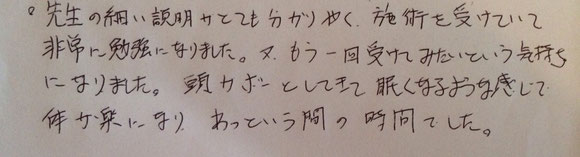 。先生の細い説明がとても分かりやく、施術を受けていて
非常に勉強になりました。又、もう一回受けてみたいという気持ち
になりました。頭がボーとしてきて眠くなるような感じで
体が楽になり、あっという間の時間でした。